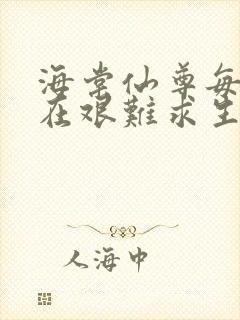 海棠仙尊每
在艰難求生
人海中